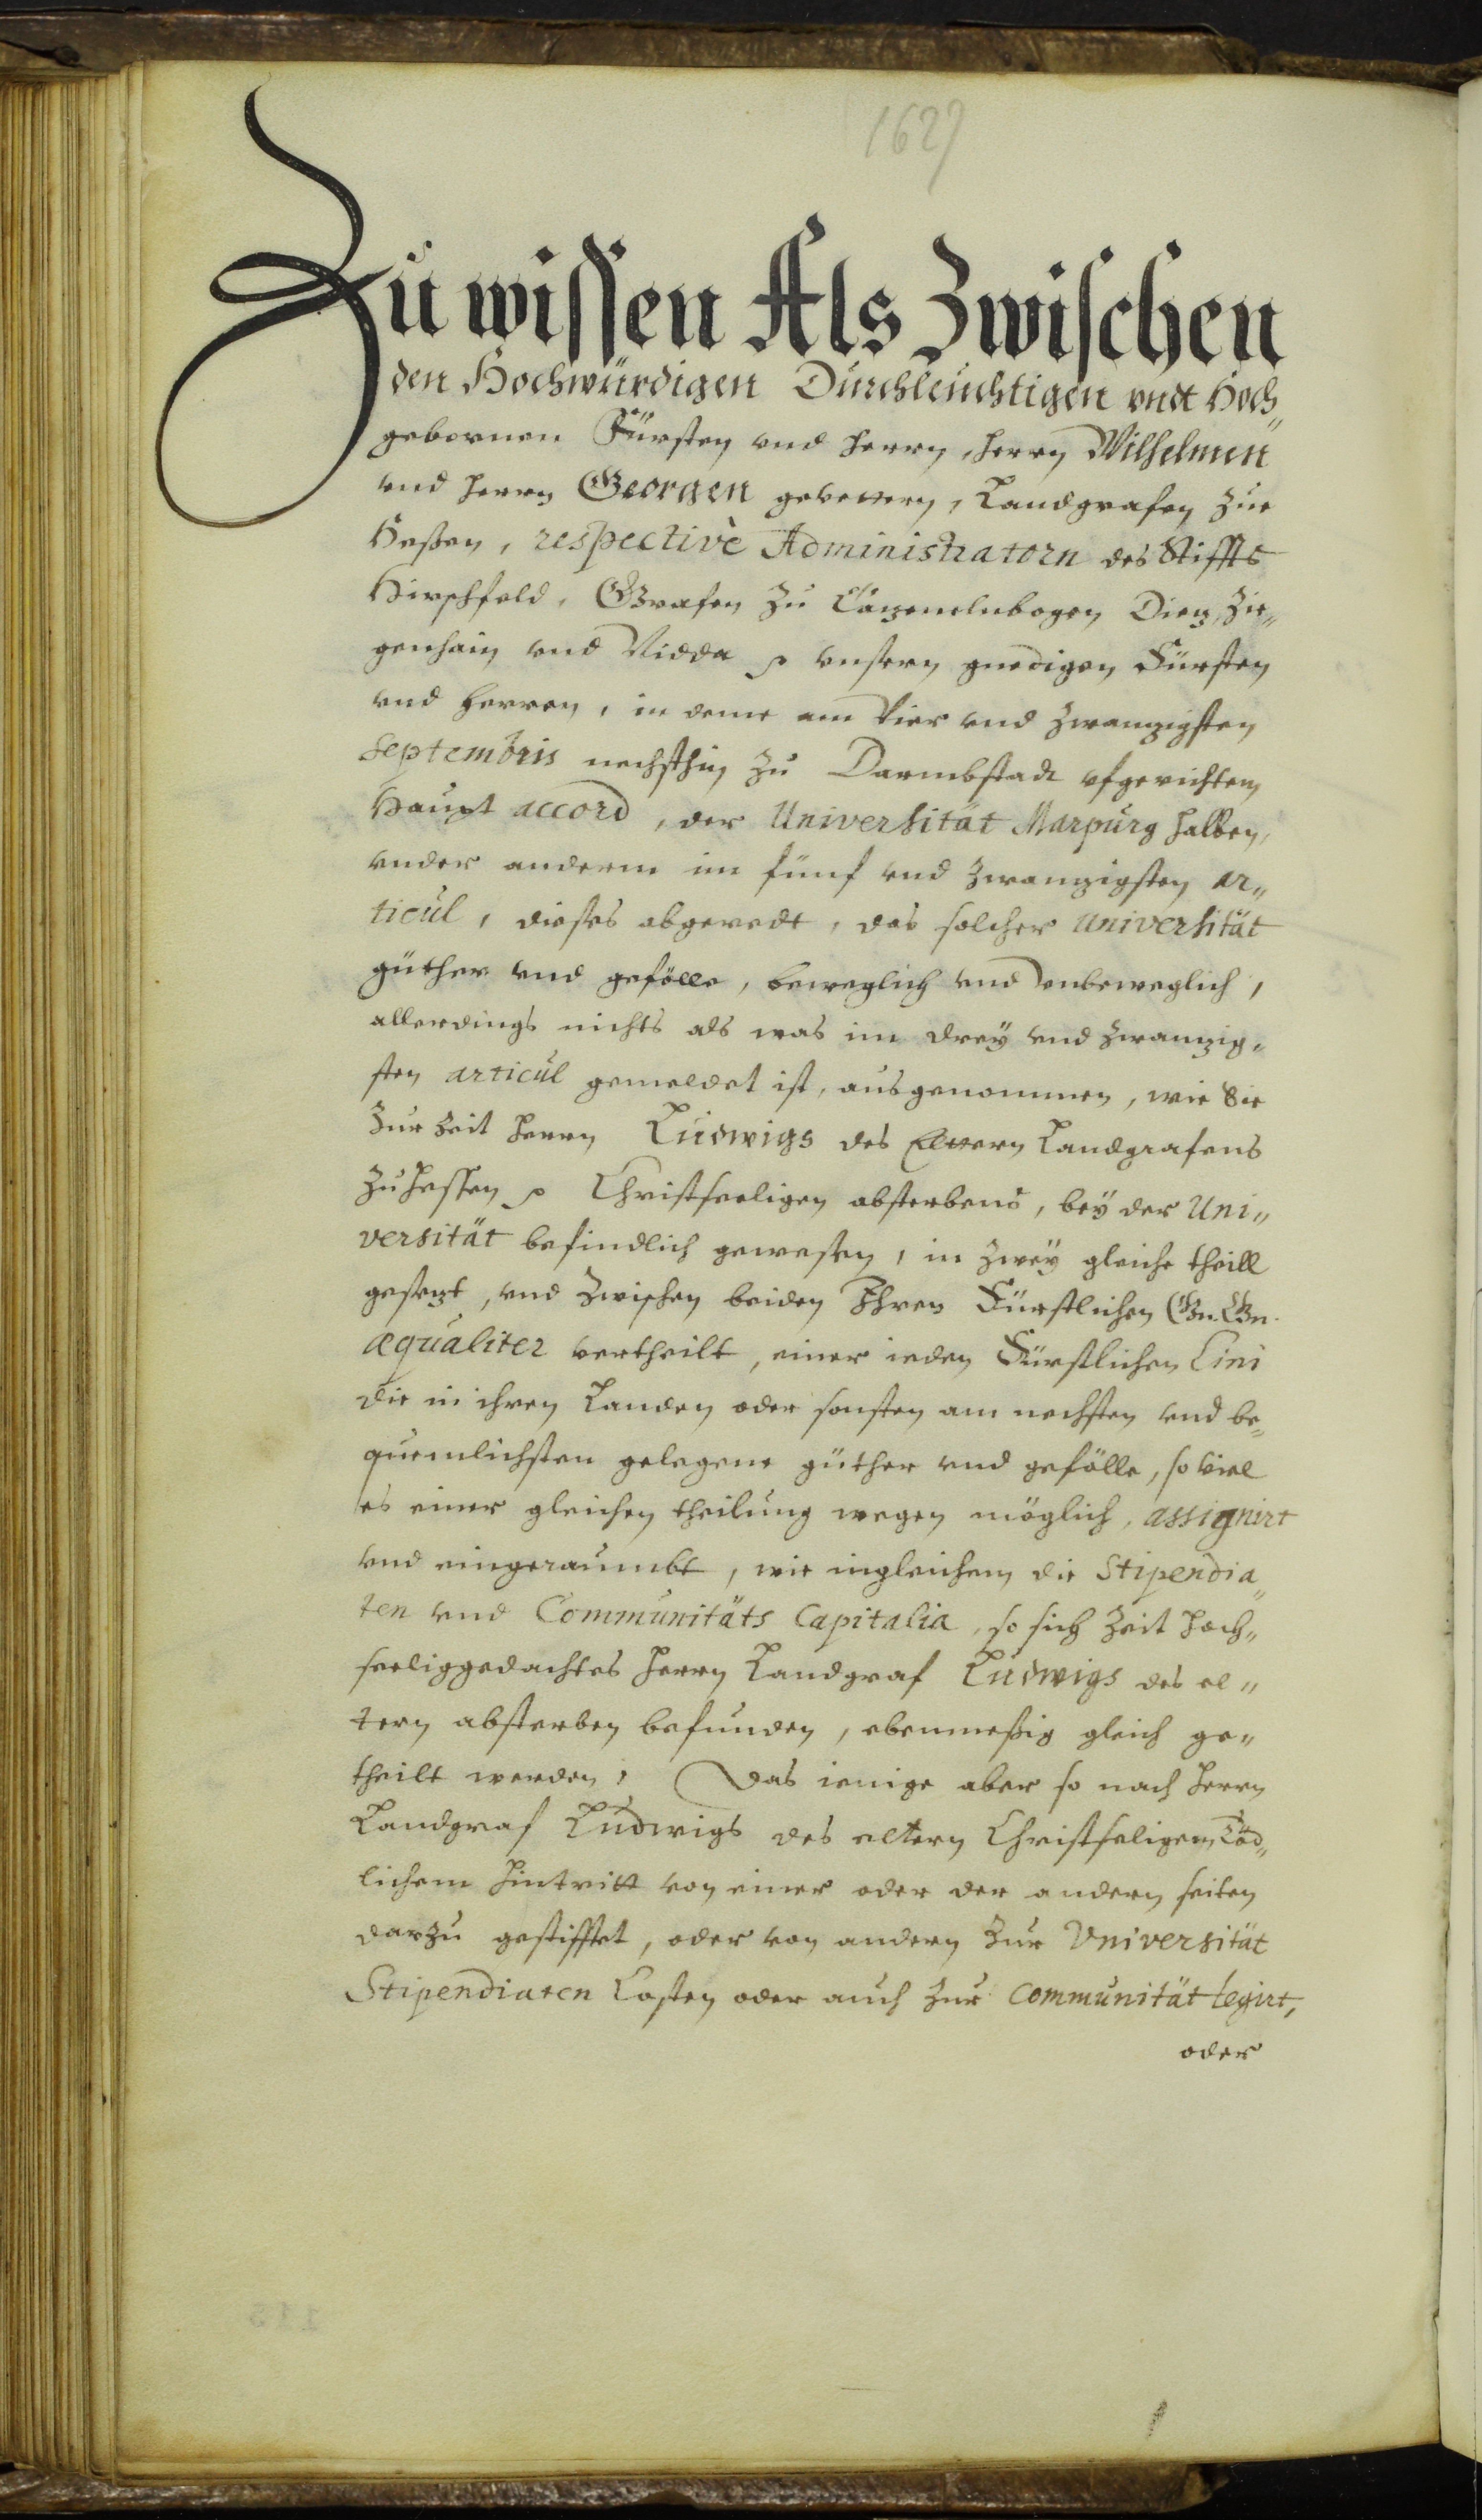 1627
Zu wissen Als Zwischen
den Hochwürdigen Durchleuchtigen vndt Hoch„
gebornen Fürsten vnd Herrn, Herrn Wilhelmen
vnd Herrn Georgen gevettern, Landgrafen zue
Heßen, respectivè Administratorn des Stiffts
Hirschfeld, Grafen zu Catzenelnbogen Dietz, Zie„
genhain vnd Nidda ꝛc vnsern gnedigen Fürsten
vnd Herren, in deme am Vier vnd zwanzigsten
Septembris nechsthin zu Darmbstadt vfgerichten
Haupt accord, der Universität Marpurg halben,
vnder anderm im fünf vnd zwanzigsten ar„
ticul, dieses abgeredt, das solcher Universität
güther vnd gefölle, beweglich vnd vnbeweglich,
allerdings nichts als was im drey vnd zwanzig„
sten articul gemeldet ist, ausgenommen, wie Sie
zur zeit Herrn Ludwigs des Eltern Landgrafens
zu Hessen ꝛc Christseeligen absterbens, bey der Uni„
versität befindlich gewesen, in zwey gleiche theill
gesetzt, vnd zwischen beiden Ihren Fürstlichen Gn. Gn.
æqualiter vertheilt, einer ieden Fürstlichen Lini
die in ihren Landen oder sonsten am nechsten vnd be„
quemlichsten gelegene güther vnd gefölle, so viel
es einer gleichen theilung wegen möglich, assignirt
vnd eingeraumbt, wie ingleichem die Stipendia„
ten vnd Communitäts Capitalia, so sich zeit hoch„
seeliggedachtes Herrn Landgraf Ludwigs des el„
tern absterben befunden, ebenmeßig gleich ge„
theilt werden, Das ienige aber so nach Herrn
Landgraf Ludwigs des eltern Christseligem Töd„
lichem hintritt von einer oder der andern seiten
darzu gestifftet, oder von andern zur Vniversität
Stipendiaten Casten oder auch zur Communität legirt,
oder